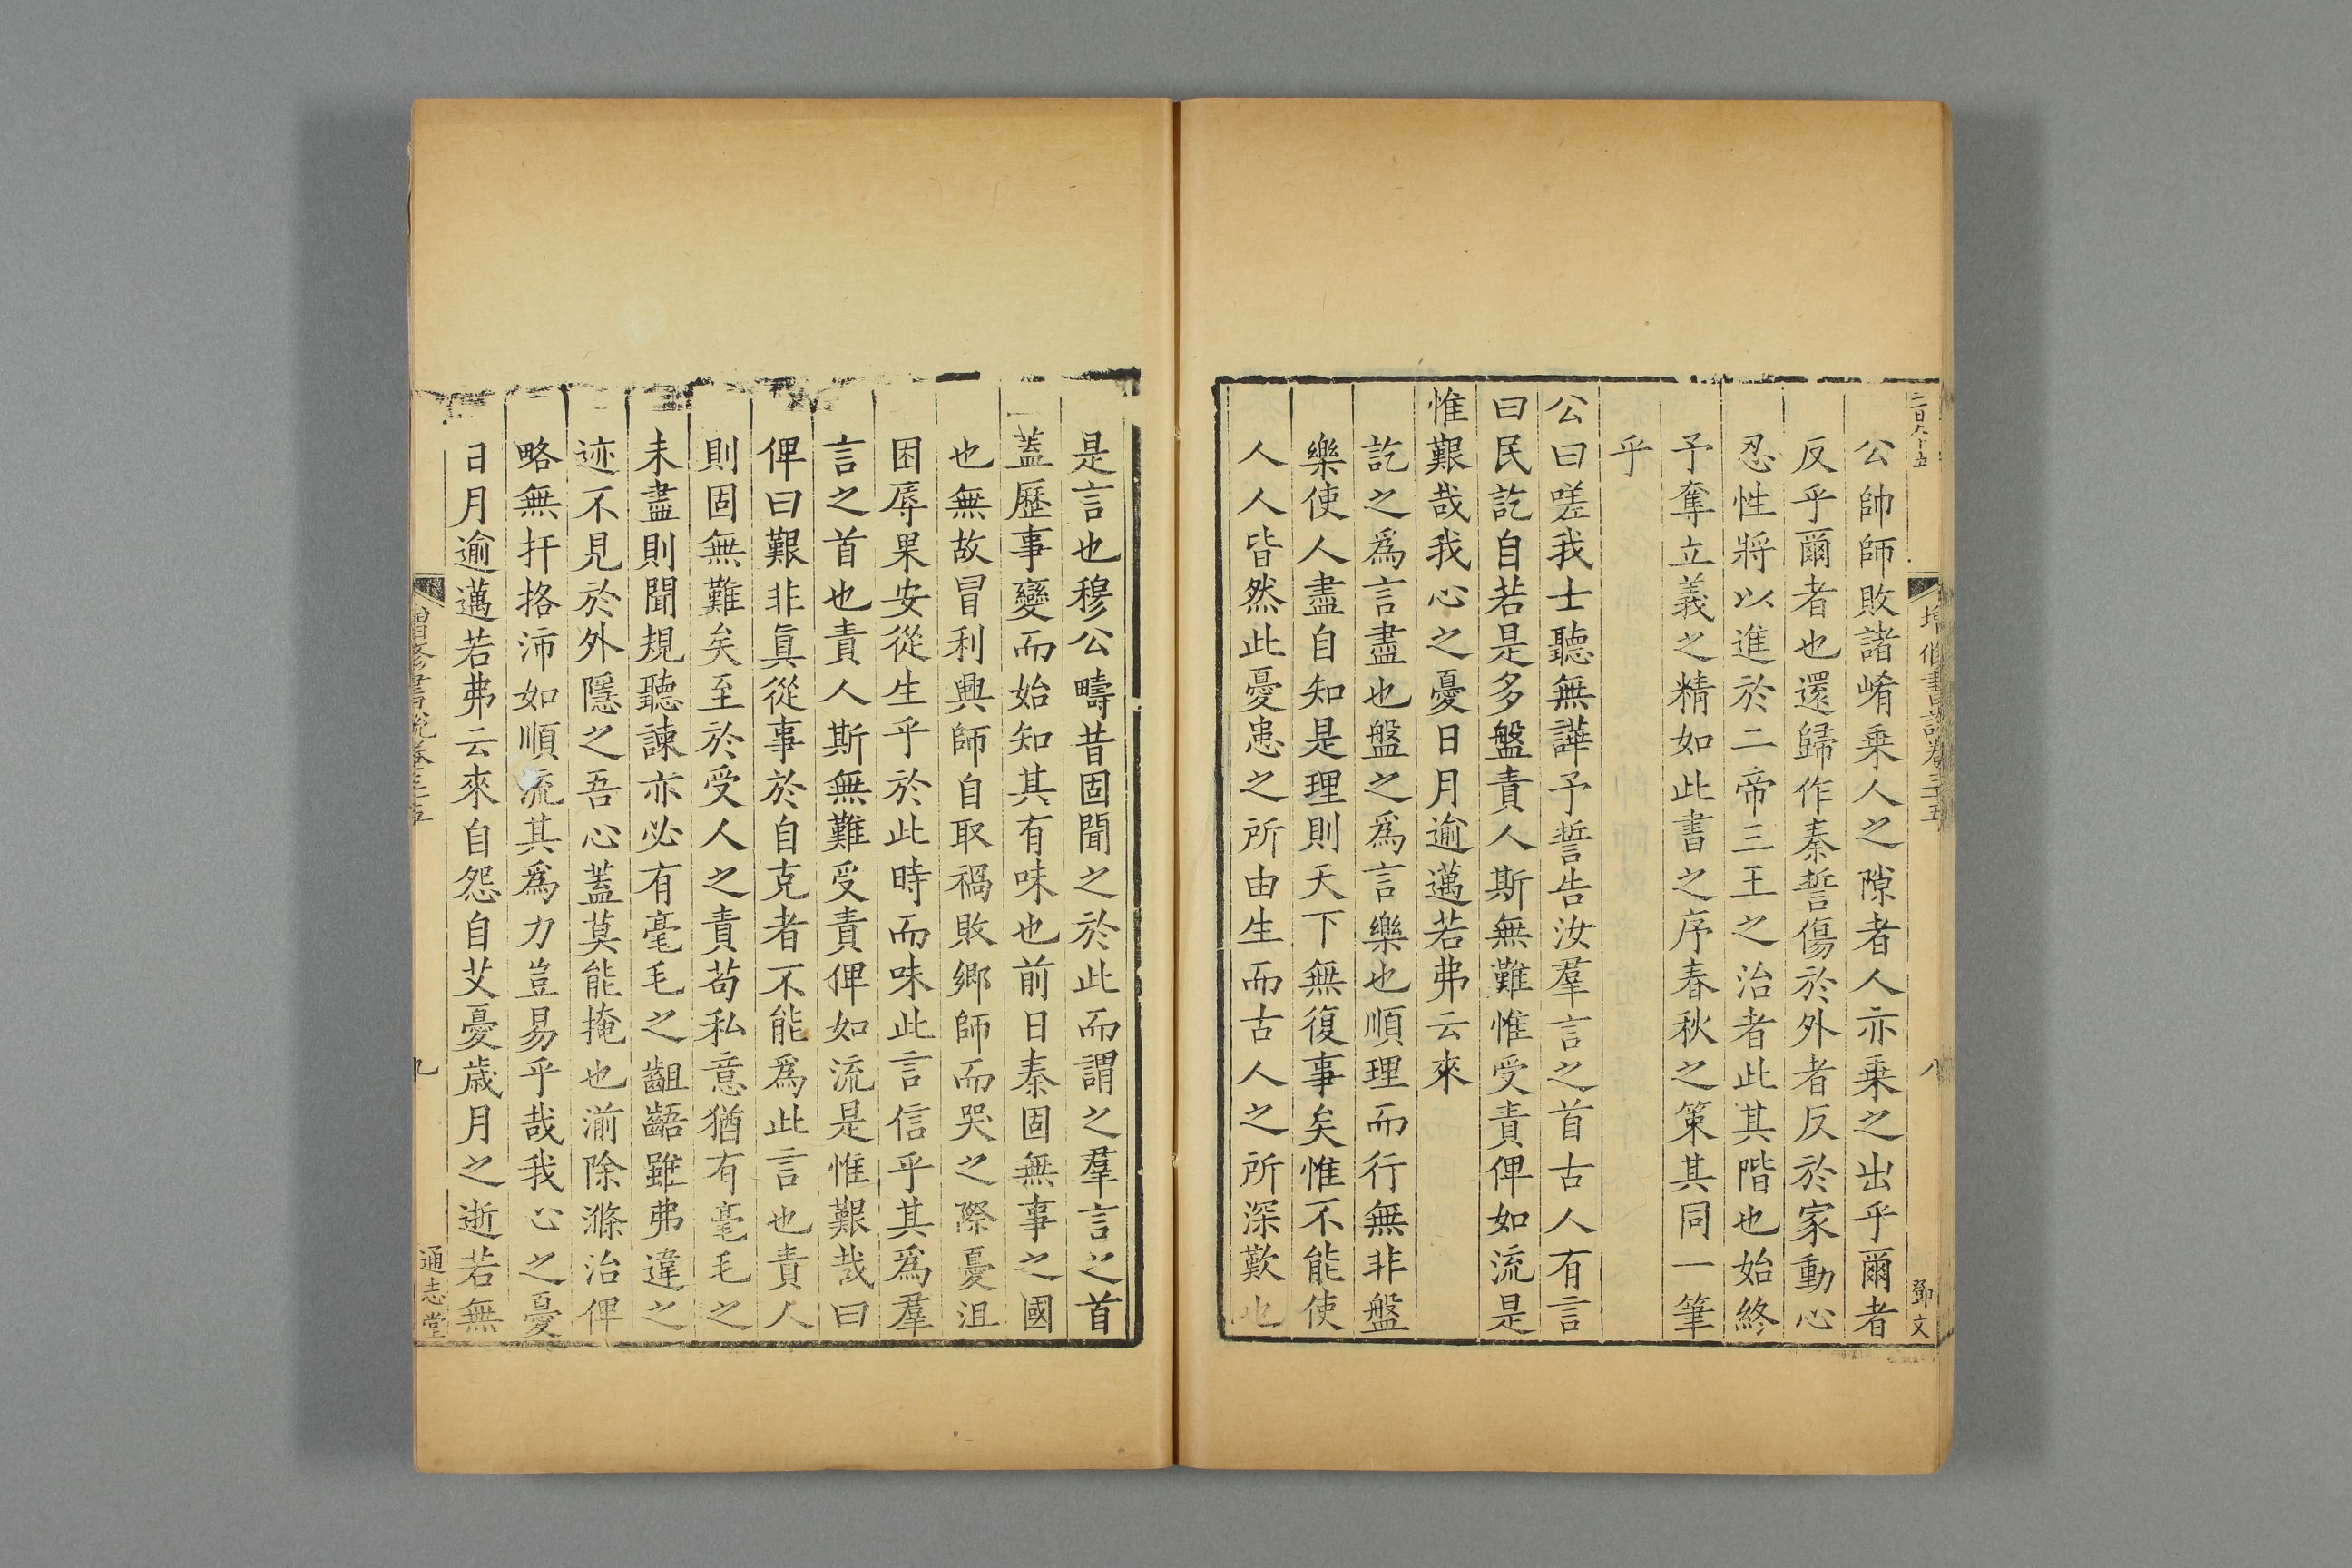 公帥師敗諸崤乗人之隙者人亦乗之出乎爾者
反乎爾者也還歸作秦誓傷於外者反於家動心
忍性將以進於二帝三王之治者此其階也始終
予奪立義之精如此書之序春秋之策其同一筆
乎
公曰嗟我士聽無譁予誓告汝羣言之首古人有言
曰民訖自若是多盤責人斯無難惟受責俾如流是
惟艱哉我心之憂日月逾邁若弗云來
訖之爲言盡也盤之爲言樂也順理而行無非盤
樂使人盡自知是理則天下無復事矣惟不能使
人人皆然此憂患之所由生而古人之所深歎也
鄧文
是言也穆公疇昔固聞之於此而謂之羣言之首
蓋歷事變而始知其有味也前日秦固無事之國
也無故冒利興師自取禍敗鄉師而哭之際憂沮
困辱果安從生乎於此時而味此言信乎其爲羣
言之首也責人斯無難受責俾如流是惟艱哉曰
俾曰艱非眞從事於自克者不能爲此言也責人
則固無難矣至於受人之責苟私意猶有毫毛之
未盡則聞規聽諫亦必有毫毛之齟齬雖弗違之
迹不見於外隱之吾心蓋莫能掩也湔除滌治俾
略無扞挌沛如順流其爲力豈易乎哉我心之憂
日月逾邁若弗云來自怨自艾憂歲月之逝若無
增修書說卷三十五
九
通志堂